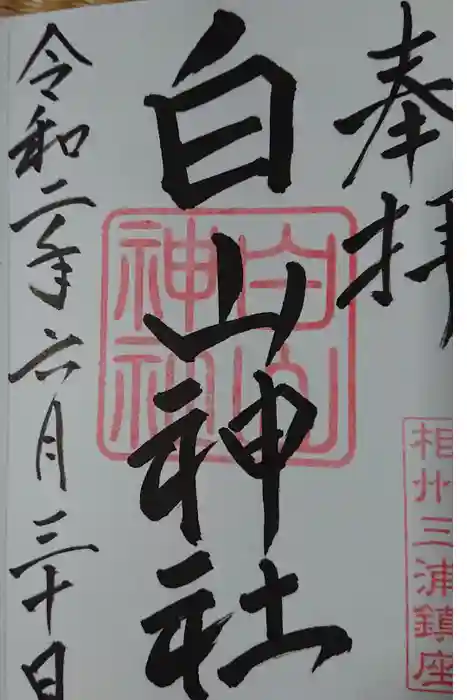 奉拝
相州三浦鎮座
白山神社
白山神社
令和二年六月三十日